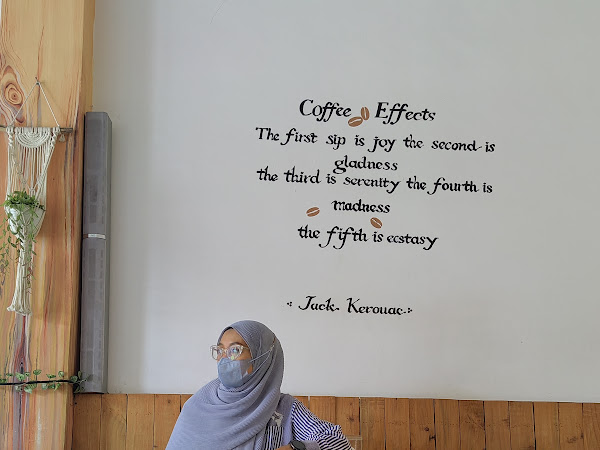 Coffee Effects
The first sip is joy the second is
gladness
the third is serenity the fourth is
madness
the fifth is ecstasy
Jack Kerouac